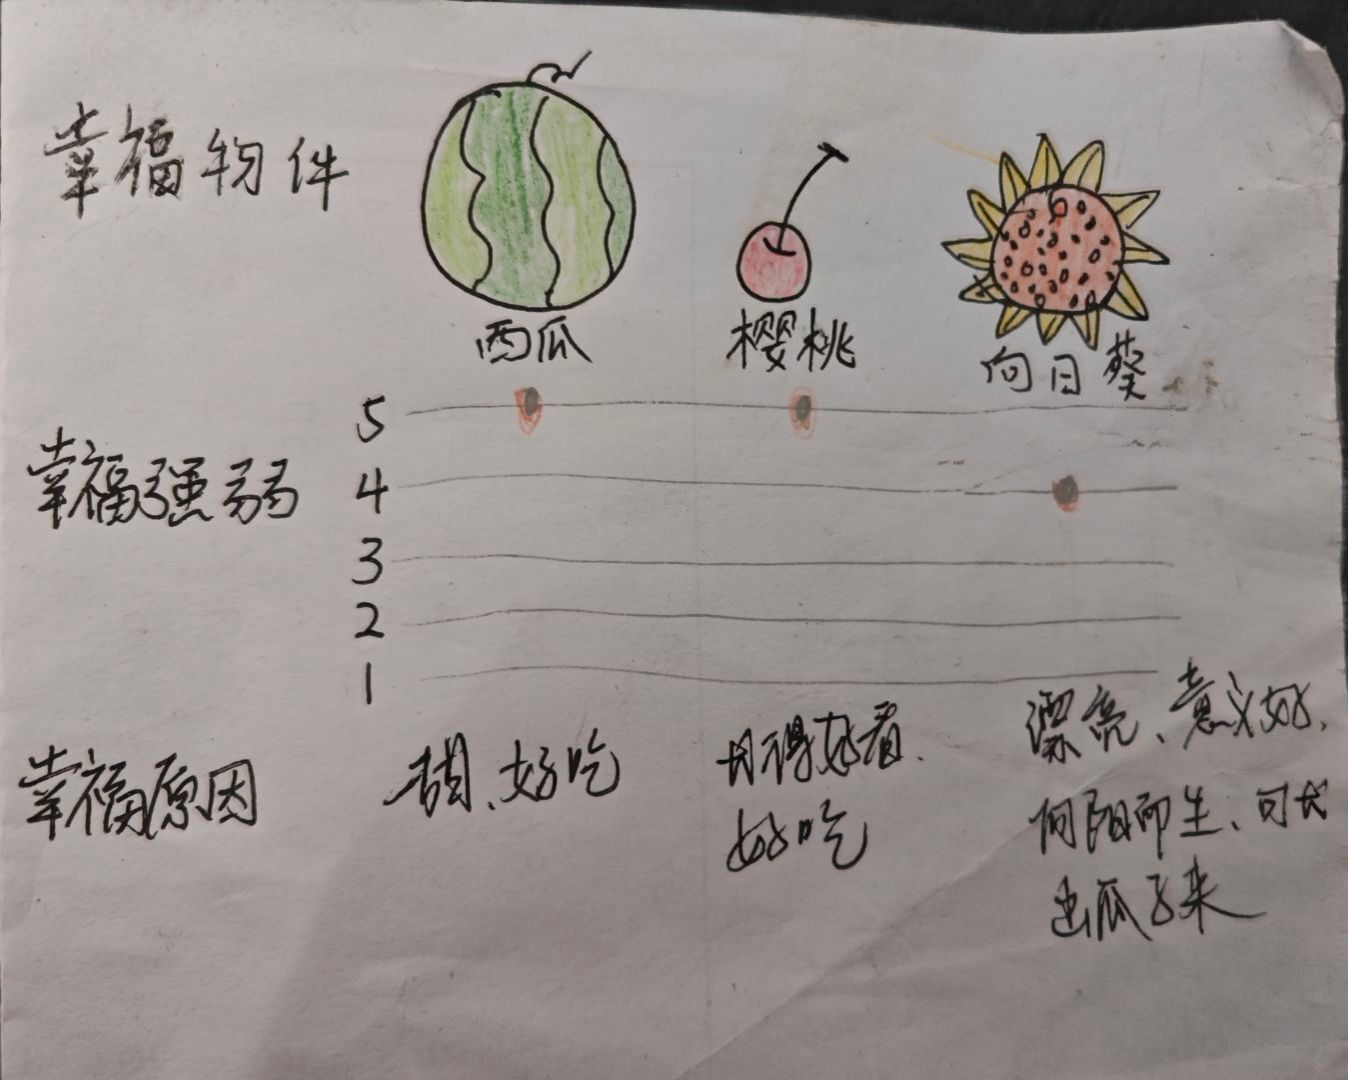 幸福物件
西瓜
樱桃
向日葵
幸福强弱
5
4
3
2
1
幸福原因
甜、好吃
长得好看、
好吃
漂亮、意义好、
向阳而生、可长
出瓜子来